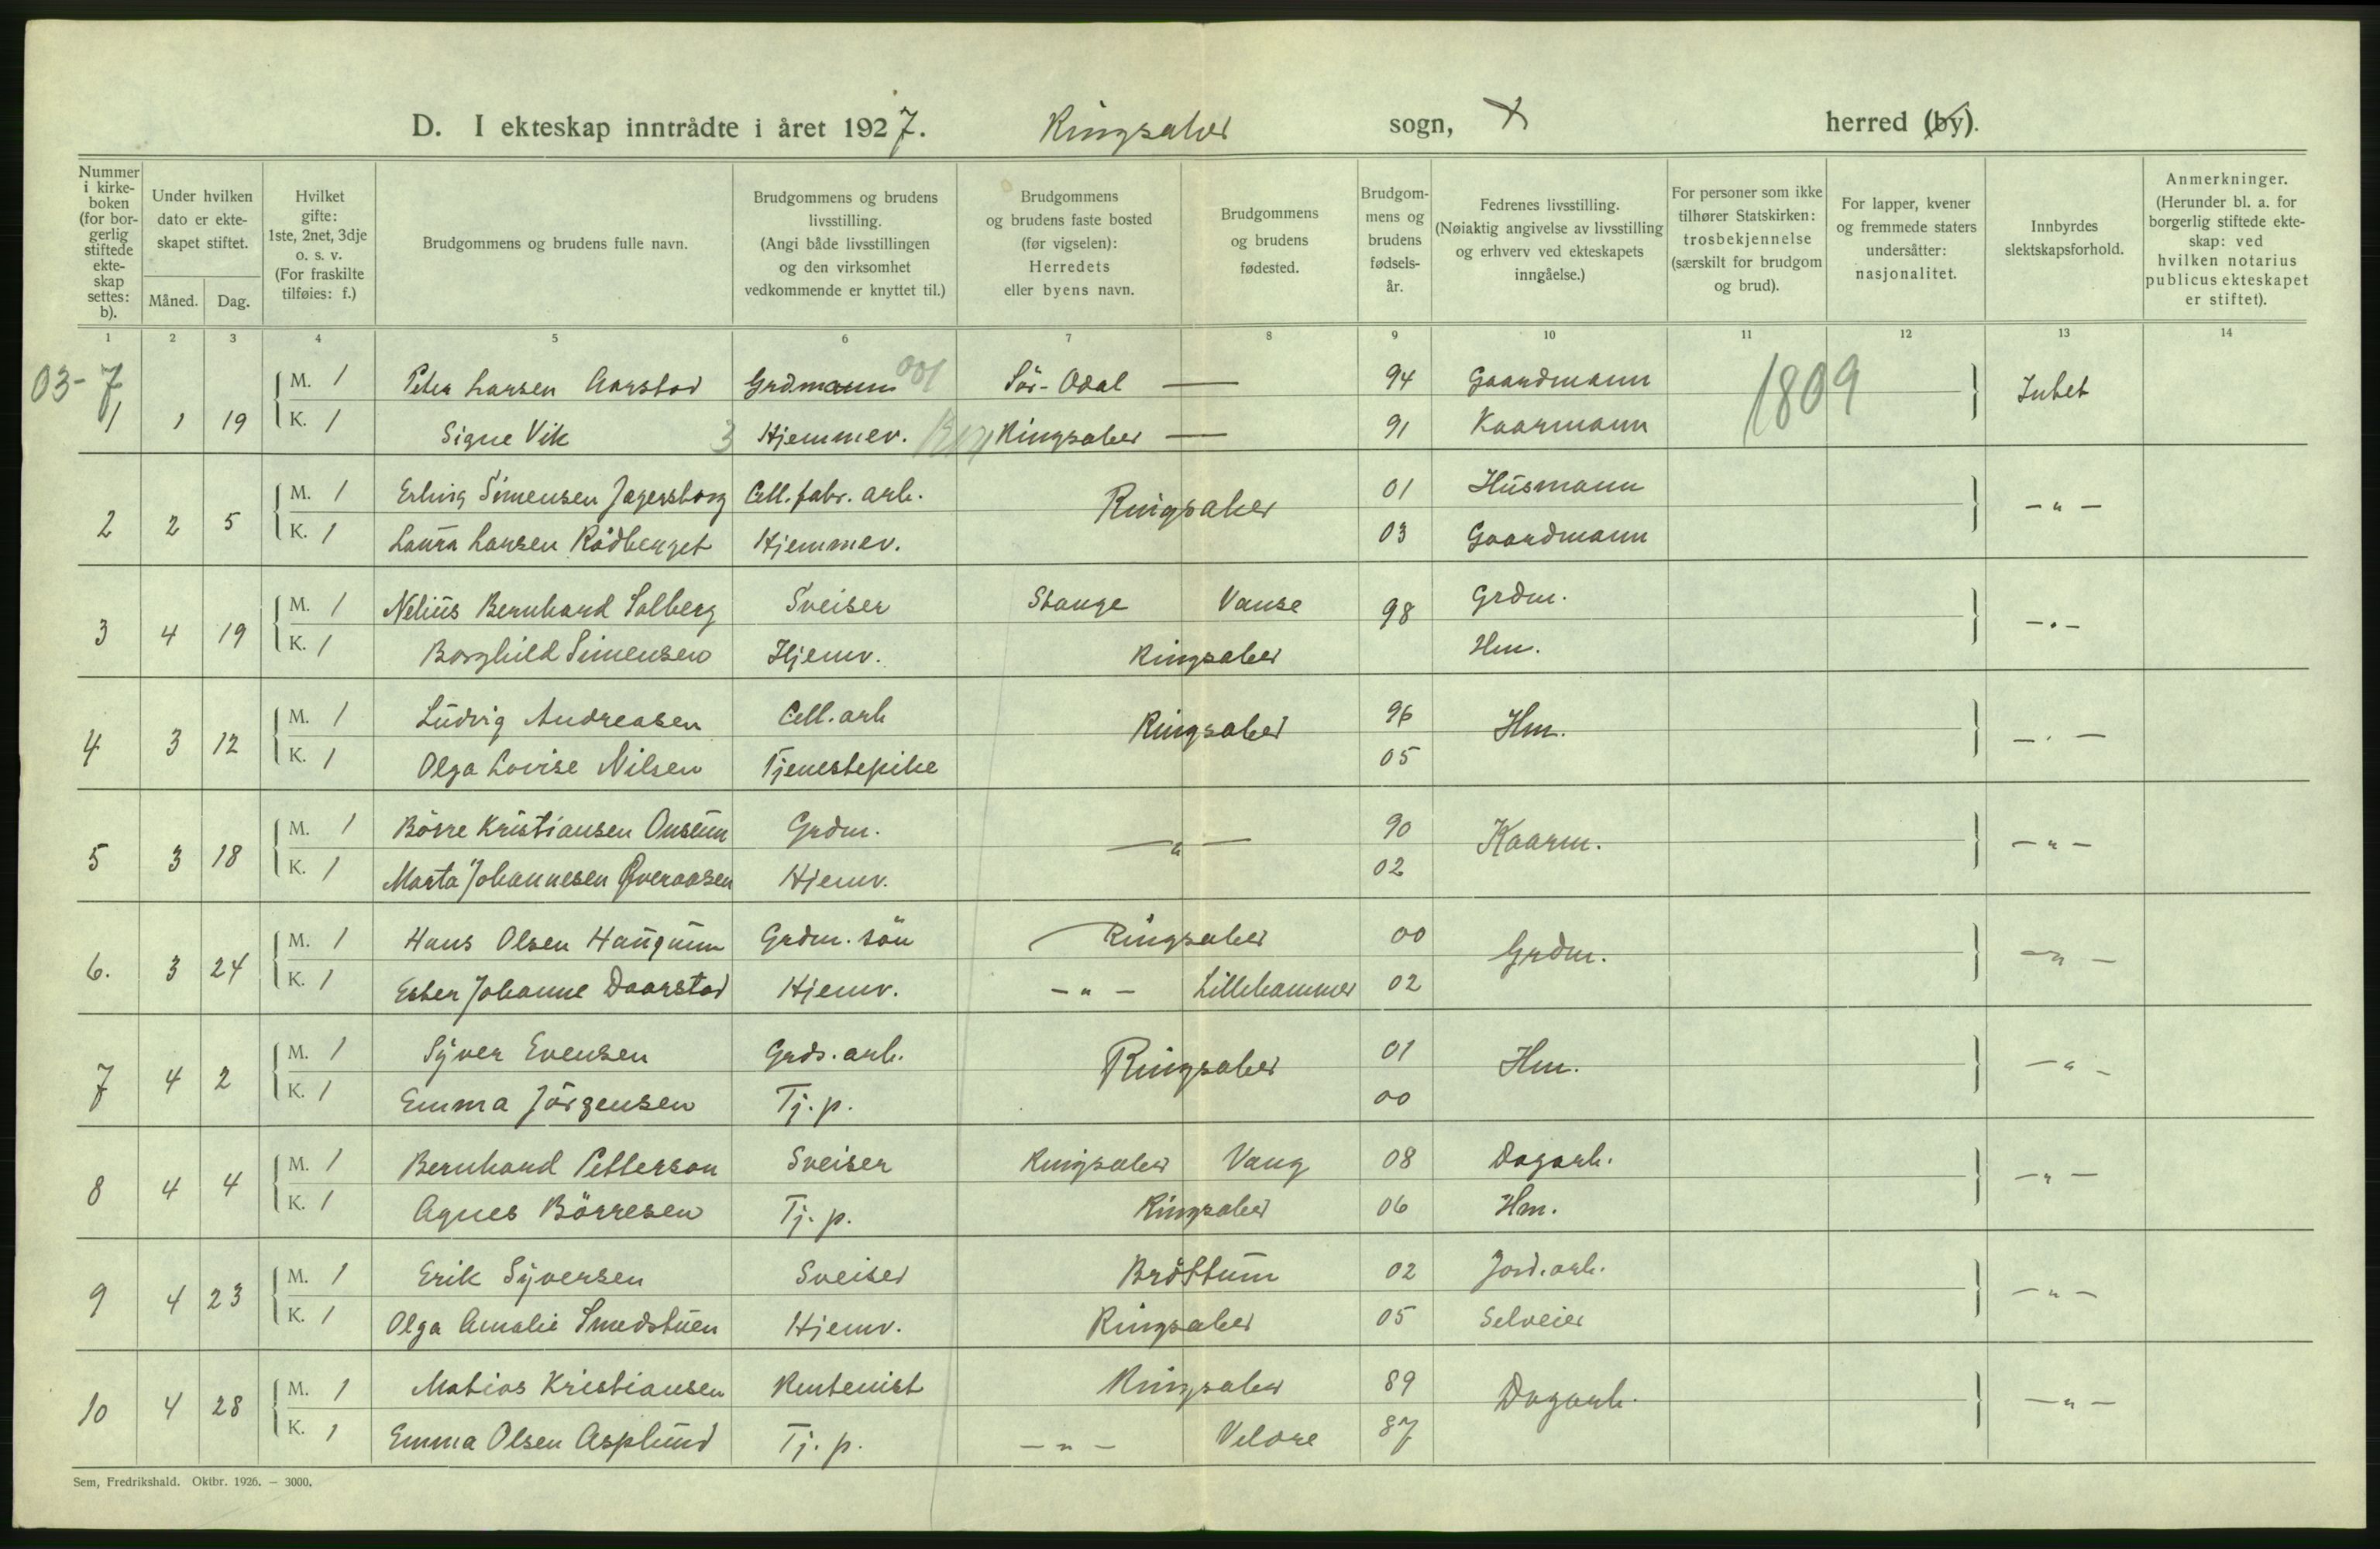 D. I ekteskap inntrådte i året 1927. Ringsaker sogn, herred (by).
Nummer i kirkeboken (for borgerlig stiftede ekteskap settes: b).
Under hvilken dato er ekteskapet stiftet.
Måned. Dag.
Hvilket gifte: 1ste, 2net, 3dje o. s. v. (For fraskilte tilføies: f.)
Brudgommens og brudens fulle navn.
Brudgommens og brudens livsstilling. (Angi både livsstillingen og den virksomhet vedkommende er knyttet til.)
Brudgommens og brudens faste bosted (før vigselen): Herredets eller byens navn.
Brudgommens og brudens fødested.
Brudgommens og brudens fødselsår.
Fedrenes livsstilling. (Nøiaktig angivelse av livsstilling og erhverv ved ekteskapets inngåelse.)
For personer som ikke tilhører Statskirken: trosbekjennelse (særskilt for brudgom og brud).
For lapper, kvener og fremmede staters undersåtter: nasjonalitet.
Innbyrdes slektskapsforhold.
Anmerkninger. (Herunder bl. a. for borgerlig stiftede ekteskap: ved hvilken notarius publicus ekteskapet er stiftet).
1 2 3 4 5 6 7 8 9 10 11 12 13 14
03-7 1809
M. 1 Peter Larsen Aarstad Grdmann 001 Sör-Odal — 94 Gaardmann
1 1 19 Intet
K. 1 Signe Vik 3 Hjemmev. Ringsaker — 91 Kaarmann
M. 1 Erling Simensen Jagersborg Cell. fabr. arb. 01 Husmann
2 2 5 Ringsaker —"—
K. 1 Laura Larsen Rödberget Hjemmev. 03 Gaardmann
M. 1 Nelius Bernhard Solberg Sveiser Stange Vanse 98 Grdm.
3 4 19 —"—
K. 1 Borghild Simensen Hjemv. Ringsaker Hm.
M. 1 Ludvig Andreasen Cell. arb 96
4 3 12 Ringsaker Hm. —"—
K. 1 Olga Lovise Nilsen Tjenestepike 05
M. 1 Börre Kristiansen Onsum Grdm. 90
5 3 18 —"— Kaarm. —"—
K. 1 Marta Johannesen Øveraasen Hjemv. 02
M. 1 Hans Olsen Haugum Grdm. sön Ringsaker 00
6. 3 24 Grdm. —"—
K. 1 Ester Johanne Daarstad Hjemv. —"— Lillehammer 02
M. 1 Syver Evensen Grds. arb. 01
7 4 2 Ringsaker Hm. —"—
K. 1 Emma Jörgensen Tj. p. 00
M. 1 Bernhard Petterson Sveiser Ringsaker Vang 08 Dagarb.
8 4 4 —"—
K. 1 Agnes Börresen Tj. p. Ringsaker 06 Hm.
M. 1 Erik Syversen Sveiser Bröttum 02 Jord. arb.
9 4 23 —"—
K. 1 Olga Amalie Smedstuen Hjemv. Ringsaker 05 Selveier
M. 1 Matias Kristiansen Rentenist Ringsaker 89
10 4 28 Dagarb. —"—
K. 1 Emma Olsen Asplund Tj. p. —"— Veldre 87
Sem, Fredrikshald. Oktbr. 1926. — 3000.